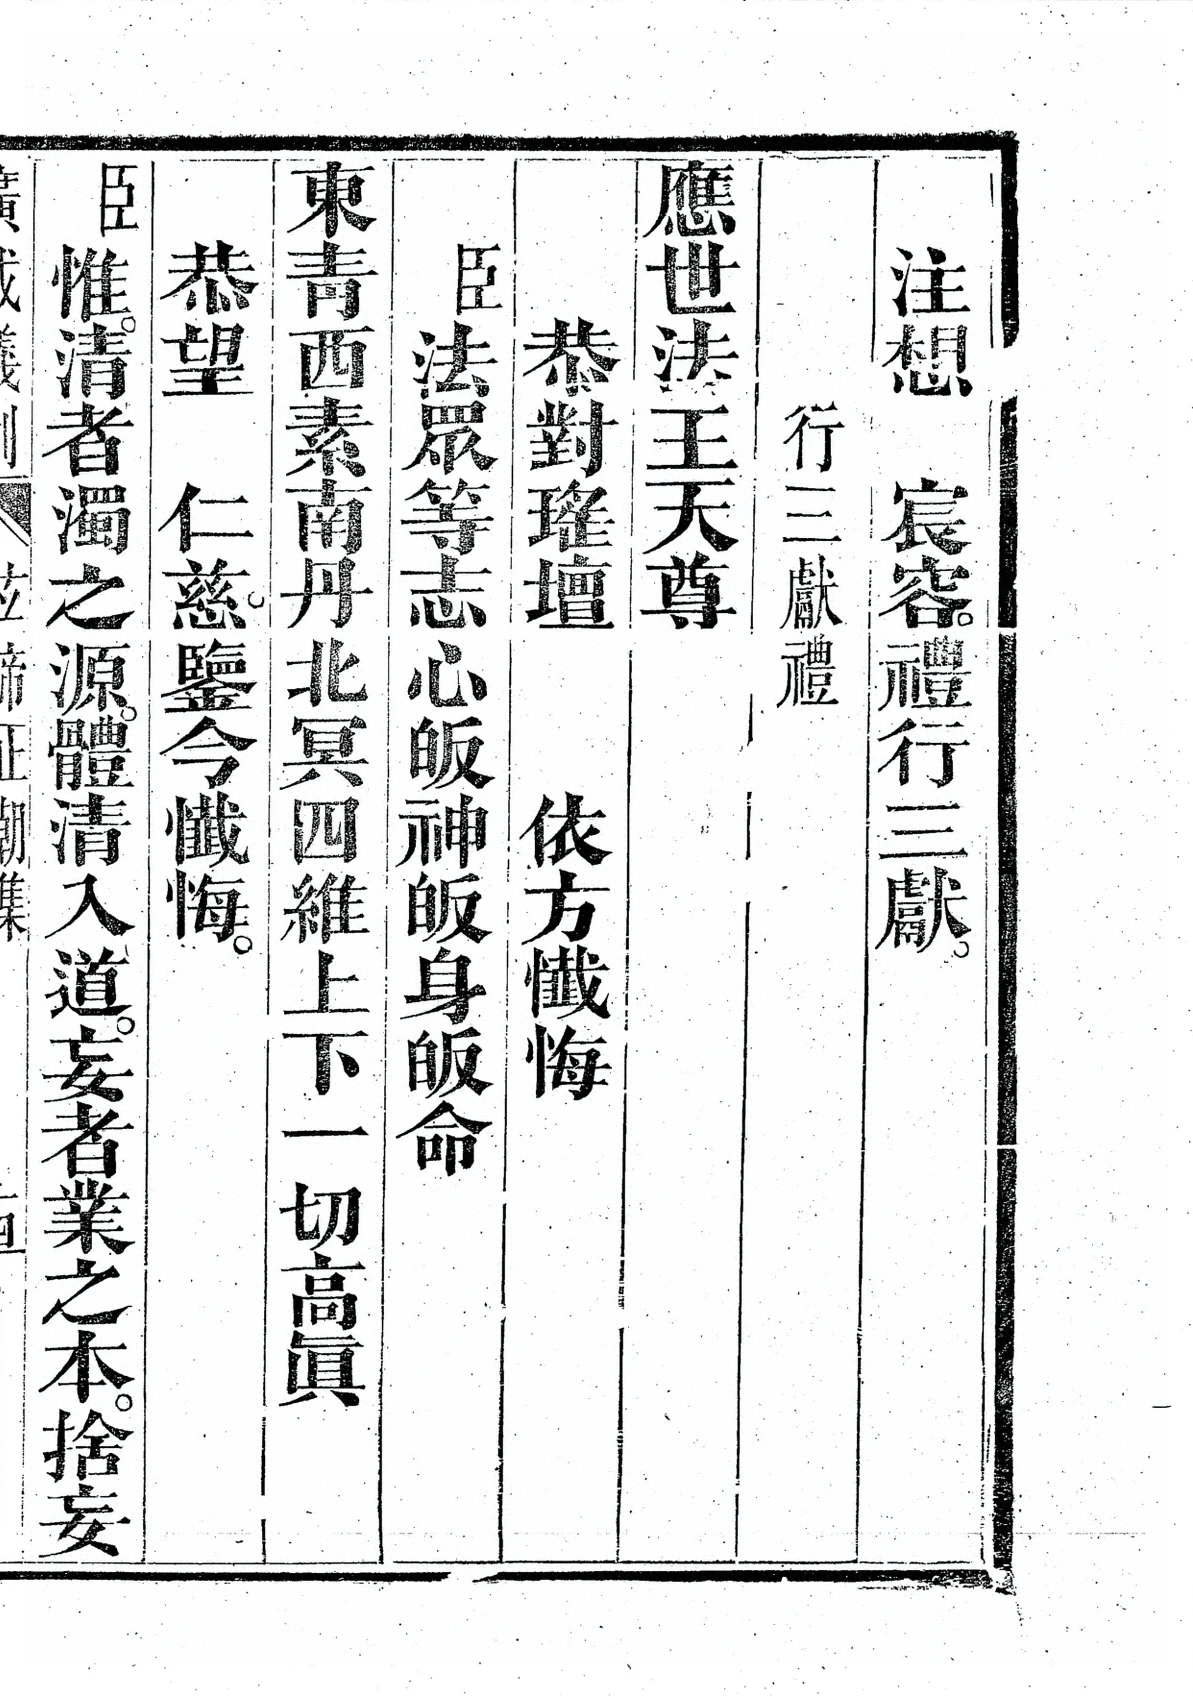 注想　宸容。禮行三獻。
行三獻禮
應世法王天尊
恭對瑤壇　　依方懺悔
臣法眾等志心皈神皈身皈命
東青西素南丹北冥四維上下一切高眞
恭望　仁慈。鑒今懺悔。
臣惟。清者濁之源。體清入道。妄者業之本。捨妄